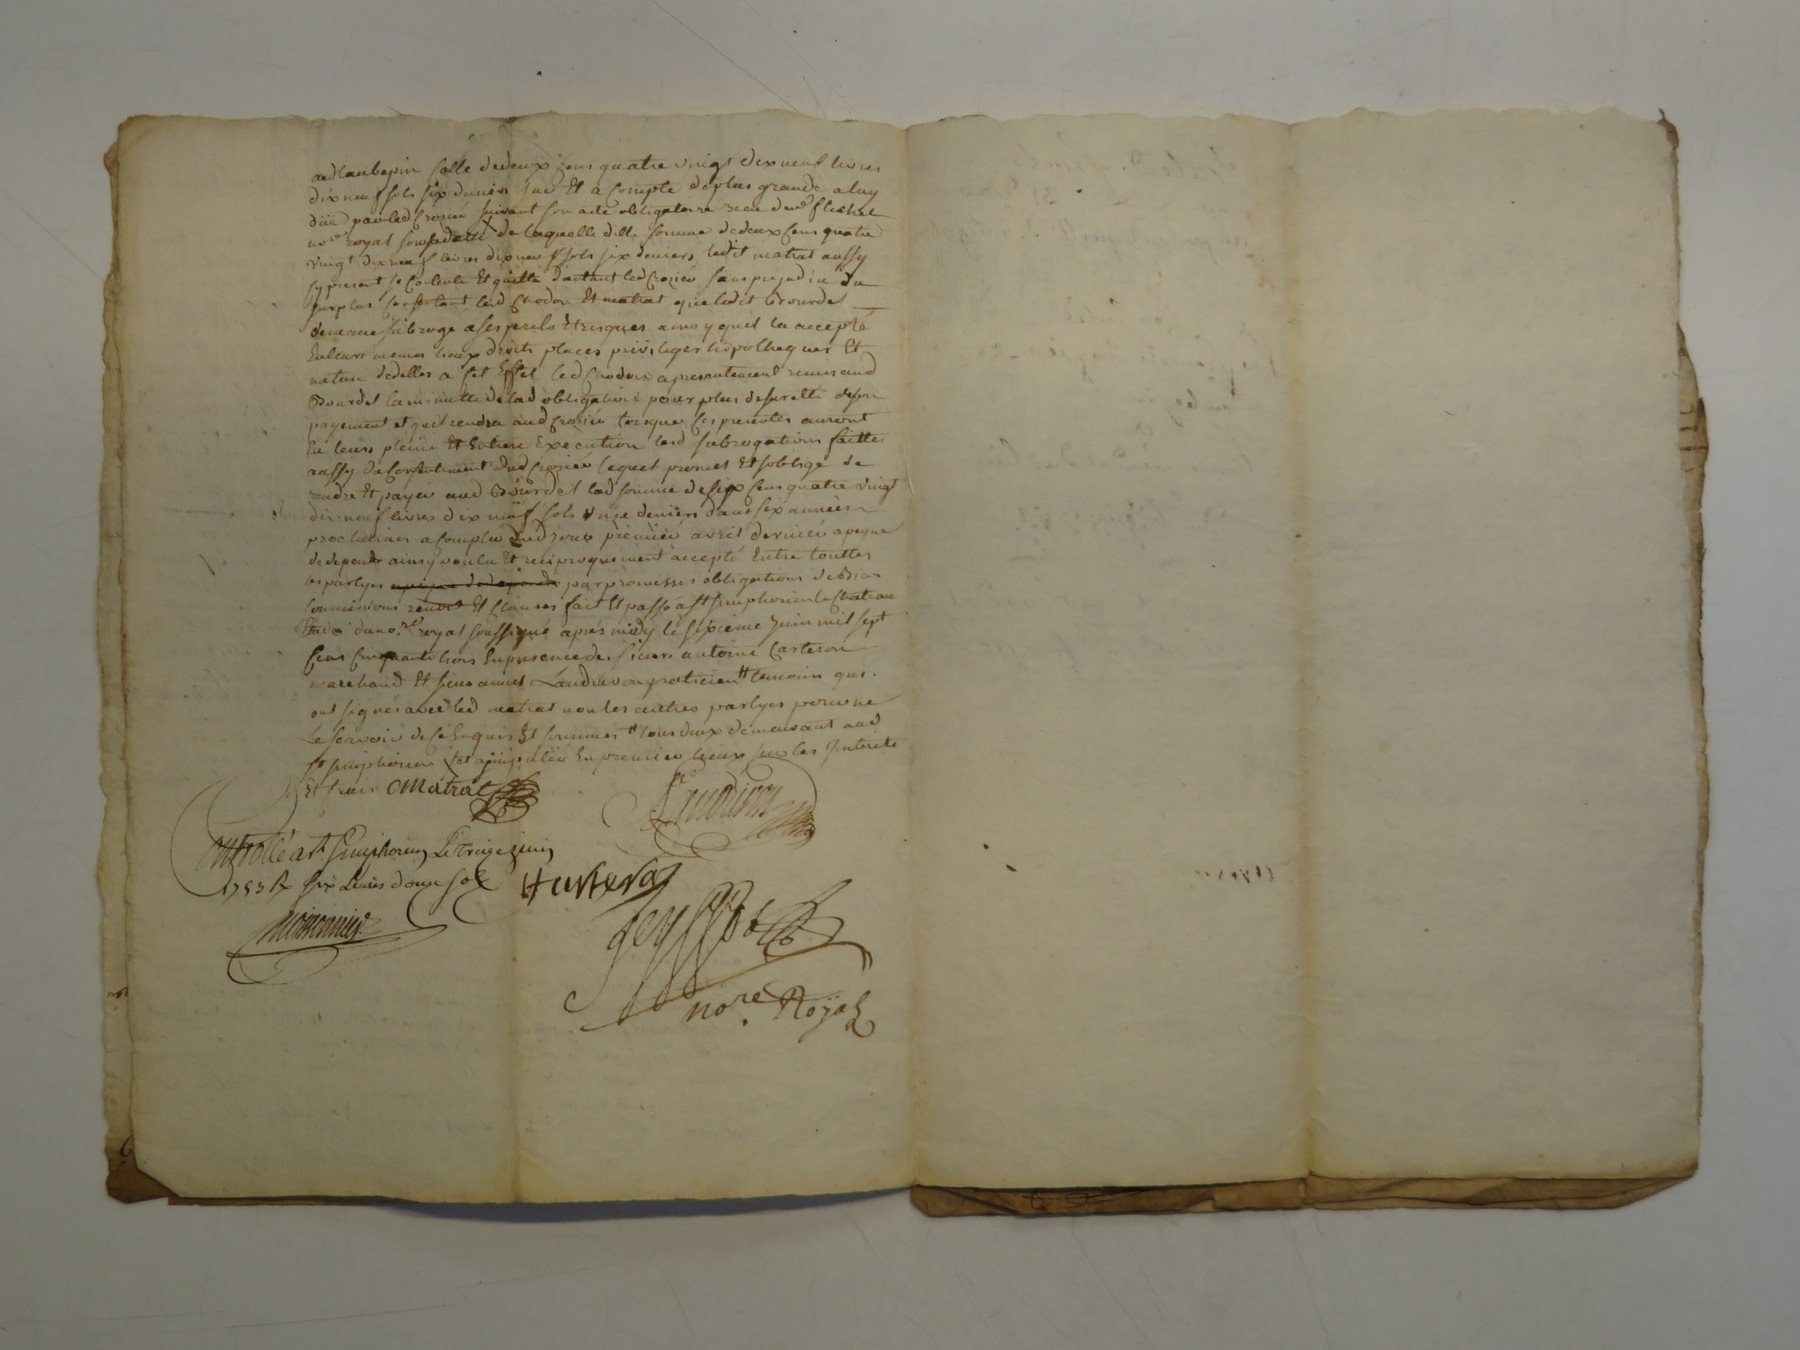 aud laubepin celle de deux cens quatre vingt dix neuf livres
dix neuf sols six deniers sur Et a compte de plus grande a luy
düe par led Crozier suivant son acte obligatoire receu de me flechet
nore royal de laquelle ditte somme de deux cens quatre
vingt dix neuf livres dix neuf sols six deniers ledit matrat aussy
sy present se contente Et quitte d'autant led Crozier sans prejudice du
surplus led Chodon Et matrat que ledit Bourdel
demeure subroge a ses perils Et risques ainsy quil la accepté
En leurs memes lieux droits places privileges hipotheques Et
nature dedettes a Cet Effet led Chodon a presentement remis aud
Bourdel la minutte de lad obligation pour plus de suretté de son
payement et quil rendra aud Crozier lorsque ces presentes auront
Eu leurs pleine Et Entiere Execution lesd subrogations faittes
aussy du Consentement dud Crozier lequel promet Et soblige de
rendre Et payer aud Bourdel lad somme de six cens quatre vingt
dix neuf livres dix neuf sols onze deniers dans six années
prochaines a compter dud jour premier avril dernier a peyne
de depends ainsy voulu Et reciproquement accepté Entre touttes
les partyes a peyne de depends par promesses obligations de Biens
soumissions renon Et Clauses fait Et passé a st simphorien le chateau
Etude du nore royal soussigné aprés midy le sixieme juin mil sept
cens cinquante trois En presence de sieurs antoine Carteron
marchand Et sieur annet Laudivon praticien temoins qui
ont signés avec led matrat non les autres partyes pour ne
le scavoir de ce Enquis Et sommés tous deux demeurant aud
st simphorien Et a jmputer En premier lieux sur les jnterets
Et frais CMatrat
Laudivon
Controllé a st Simphorien Le treize juin
1753 R six Livres douze sols
Moissonnier
nore Royal